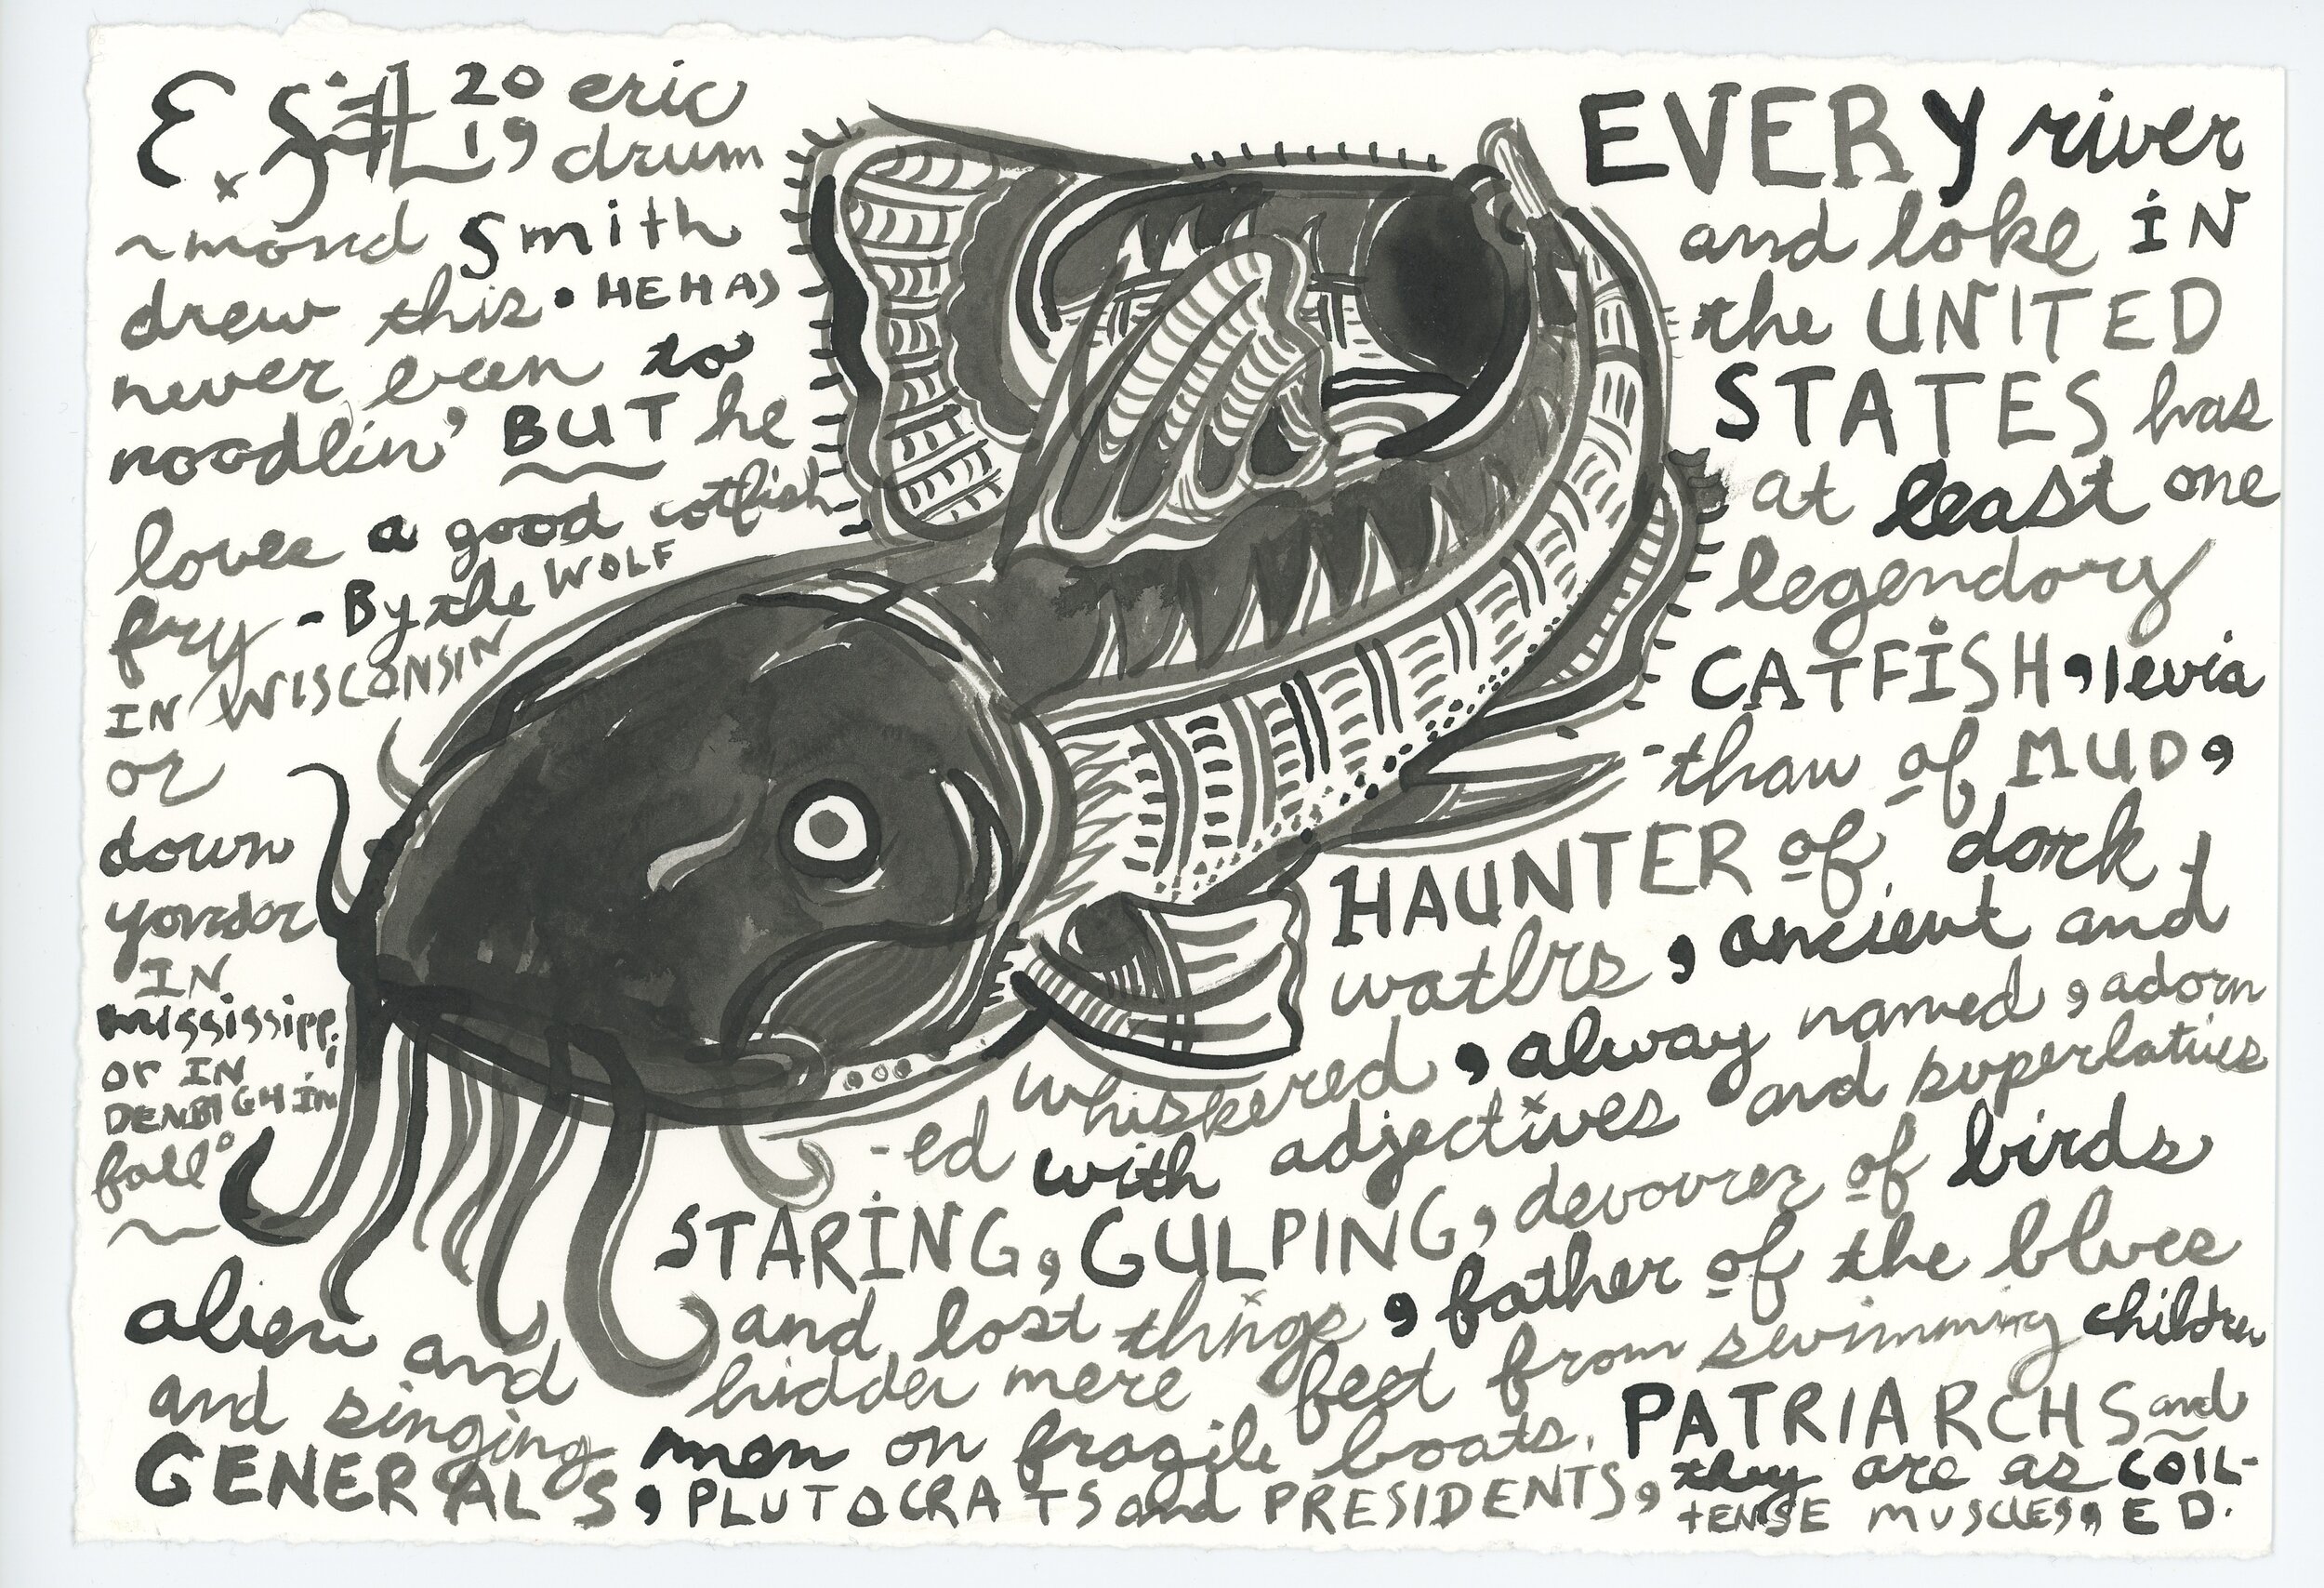 E.S#L 20 eric
19 drum
~mond Smith
drew this. HE HAS
never been to
noodlin' BUT he
loves a good catfish
fry - By the WOLF
IN WISCONSIN
or
down
yonder
IN
Mississippi
OR IN
DENBIGH IN
fall.
EVERY river
and lake IN
the UNITED
STATES has
at least one
legendary
CATFISH, levia
-than of MUD,
HAUNTER of dark
waters, ancient and
whiskered, alway named, adorn
-ed with adjectives and superlatives
STARING, GULPING, devourer of birds
and lost things, father of the blues
alien and hidden mere feet from swimming children
and singing men on fragile boats. PATRIARCHS and
GENERALS, PLUTOCRATS and PRESIDENTS, they are as COIL-
TENSE MUSCLES, ED.